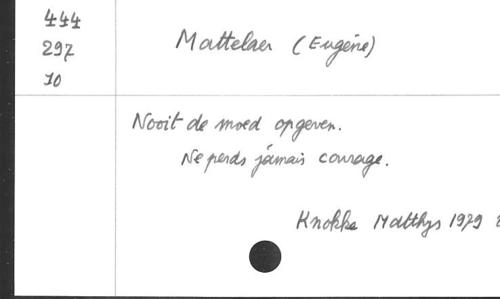 444
297
10
Mattelaer (Eugène)
Nooit de moed opgeven.
Ne perds jamais courage.
Knokke Matthys 1979